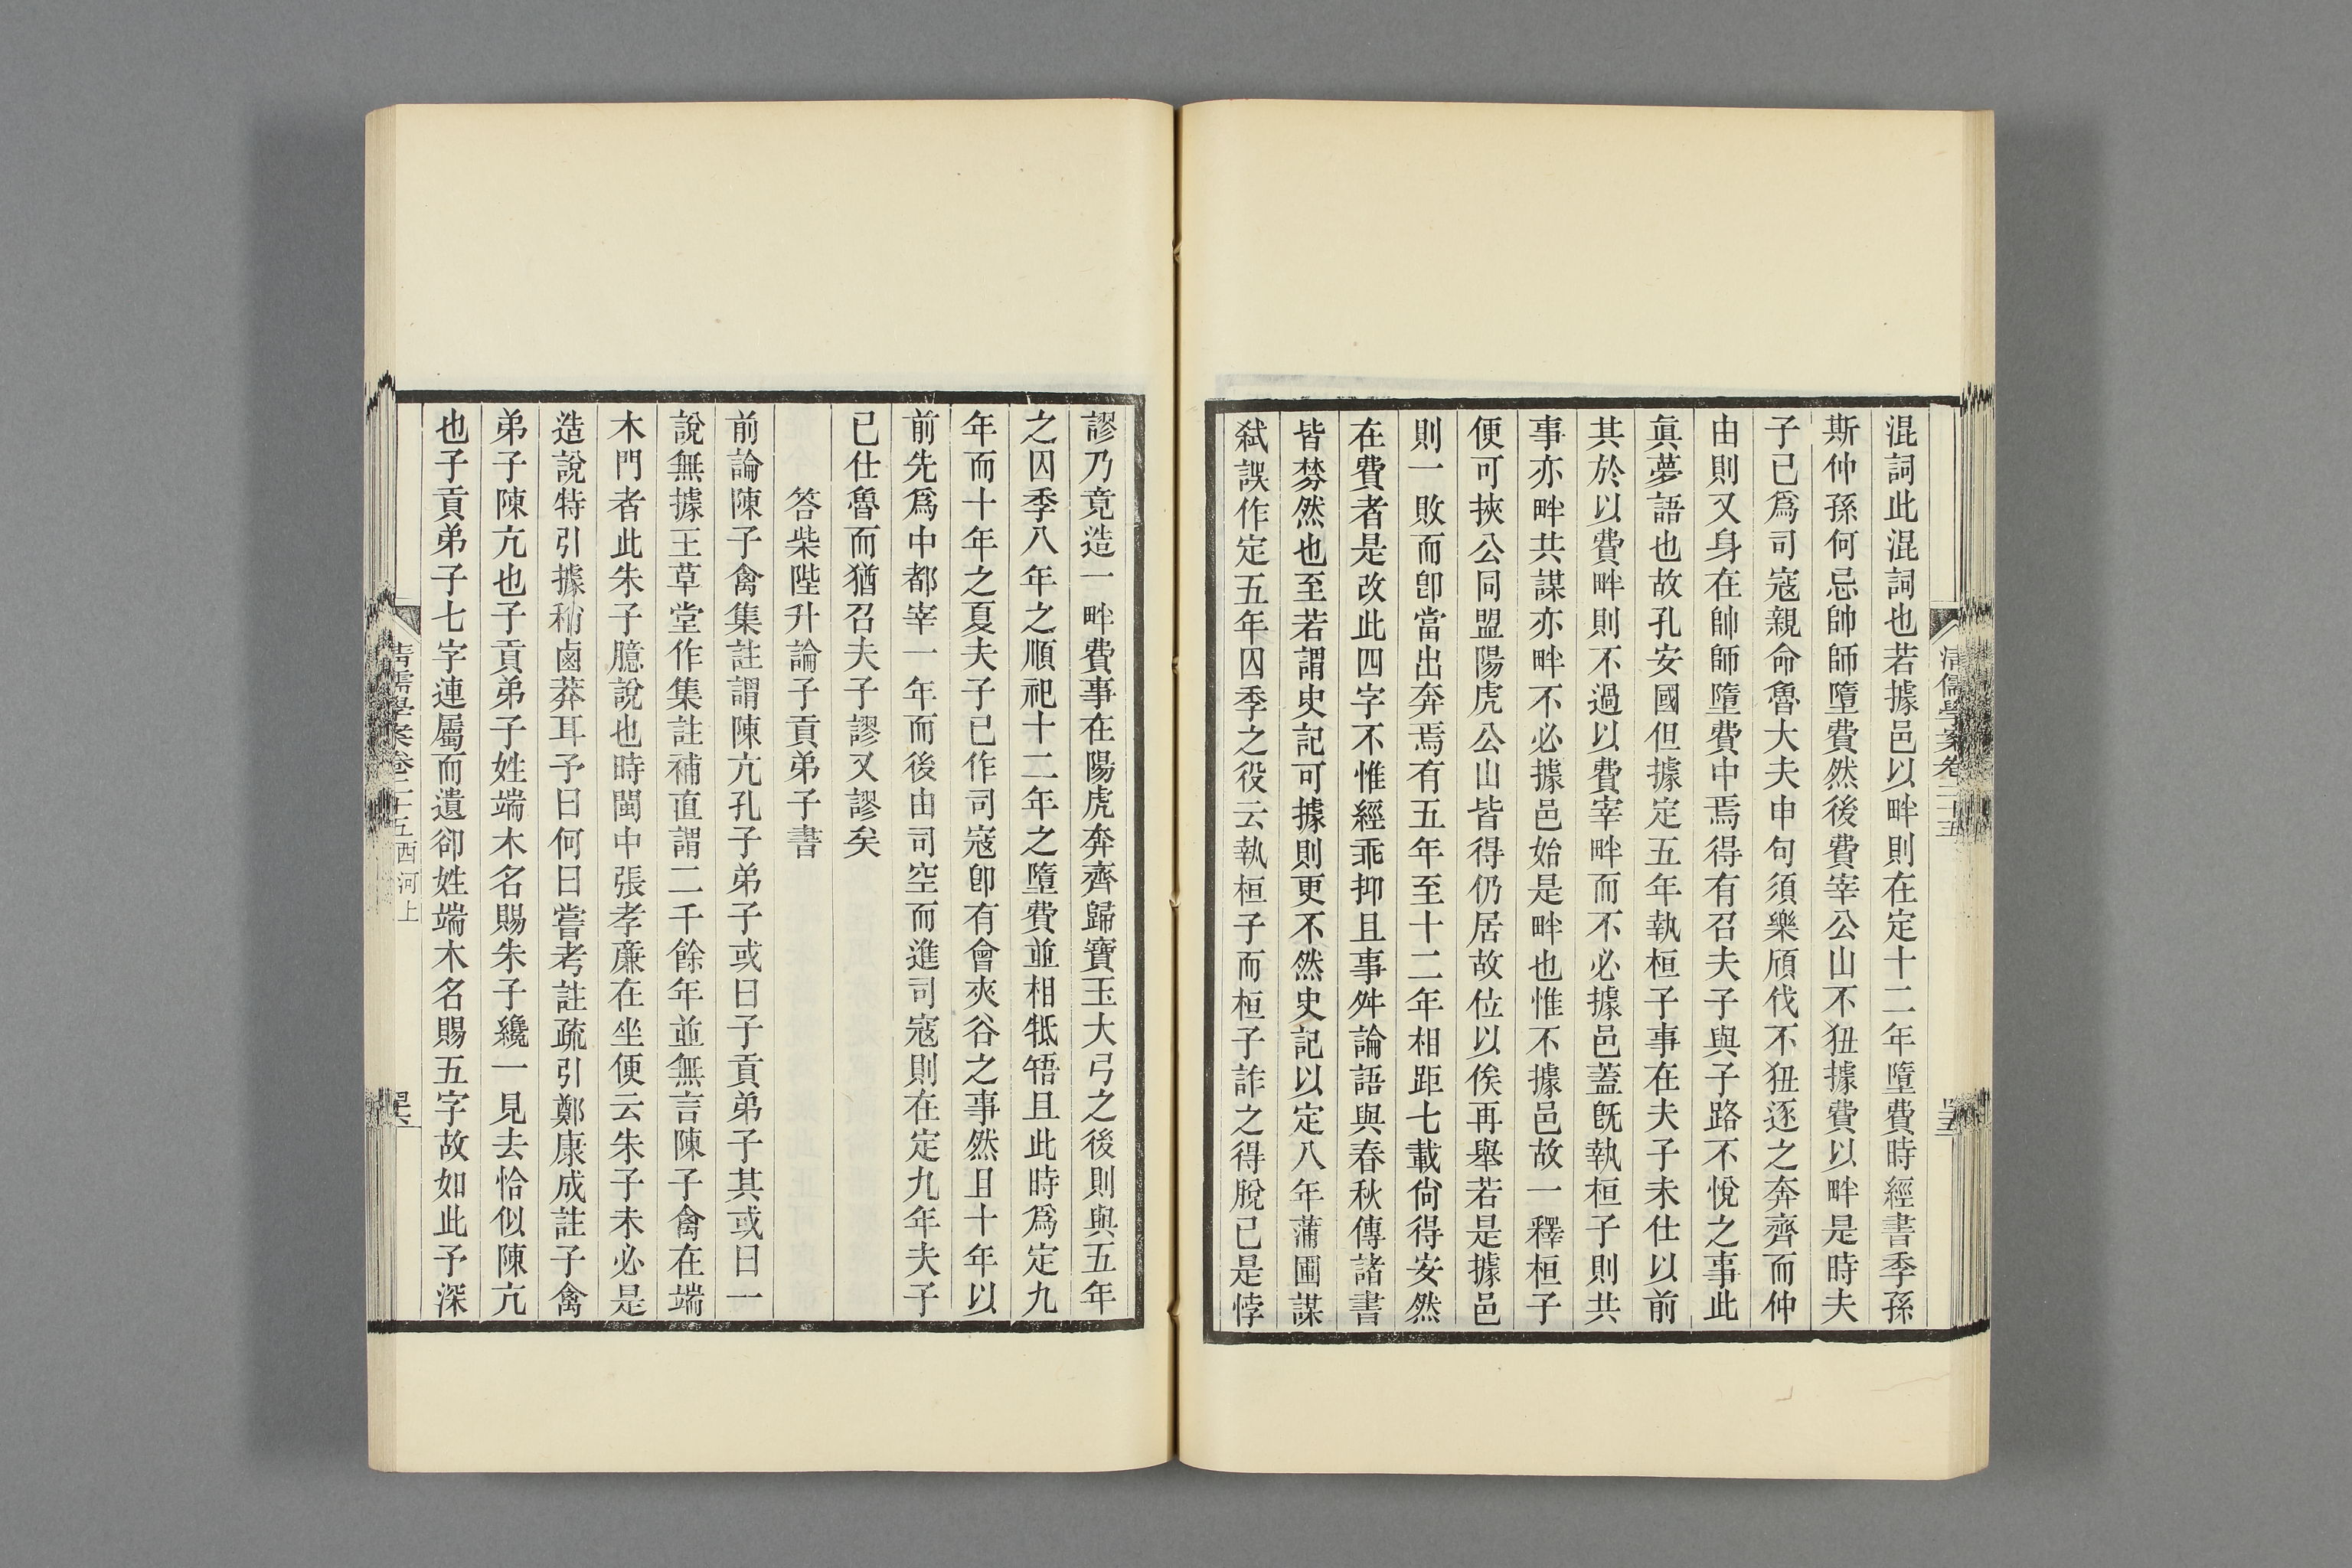 混詞此混詞也若據邑以畔則在定十二年墮費時經書季孫
斯仲孫何忌帥師墮費然後費宰公山不狃據費以畔是時夫
子已爲司寇親命魯大夫申句須樂頎伐不狃逐之奔齊而仲
由則又身在帥師墮費中焉得有召夫子與子路不悅之事此
眞夢語也故孔安國但據定五年執桓子事在夫子未仕以前
其於以費畔則不過以費宰畔而不必據邑蓋旣執桓子則共
事亦畔共謀亦畔不必據邑始是畔也惟不據邑故一釋桓子
便可挾公同盟陽虎公山皆得仍居故位以俟再舉若是據邑
則一敗而卽當出奔焉有五年至十二年相距七載尙得安然
在費者是改此四字不惟經乖抑且事舛論語與春秋傳諸書
皆棼然也至若謂史記可據則更不然史記以定八年蒲圃謀
弒誤作定五年囚季之役云執桓子而桓子詐之得脫已是悖
清儒學案卷二十五
謬乃竟造一畔費事在陽虎奔齊歸寶玉大弓之後則與五年
之囚季八年之順祀十二年之墮費並相牴牾且此時爲定九
年而十年之夏夫子已作司寇卽有會夾谷之事然且十年以
前先爲中都宰一年而後由司空而進司寇則在定九年夫子
已仕魯而猶召夫子謬又謬矣
答柴陛升論子貢弟子書
前論陳子禽集註謂陳亢孔子弟子或曰子貢弟子其或曰一
說無據王草堂作集註補直謂二千餘年並無言陳子禽在端
木門者此朱子臆說也時閩中張孝廉在坐便云朱子未必是
造說特引據稍鹵莽耳予曰何曰嘗考註疏引鄭康成註子禽
弟子陳亢也子貢弟子姓端木名賜朱子纔一見去恰似陳亢
也子貢弟子七字連屬而遺卻姓端木名賜五字故如此予深
清儒學案卷二十五 西河上